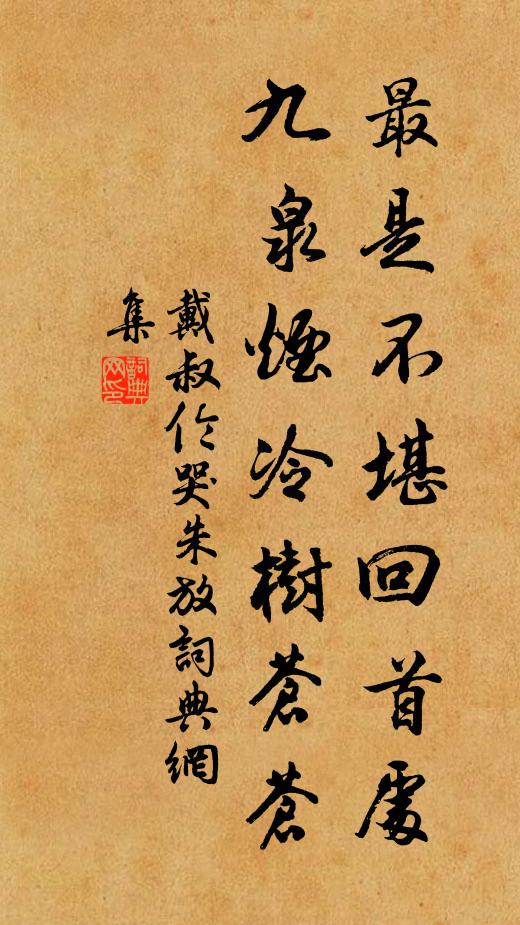 最是不堪回首處
九泉煙冷樹蒼蒼
戴叔伦哭朱放詞典網
集
詞典网印